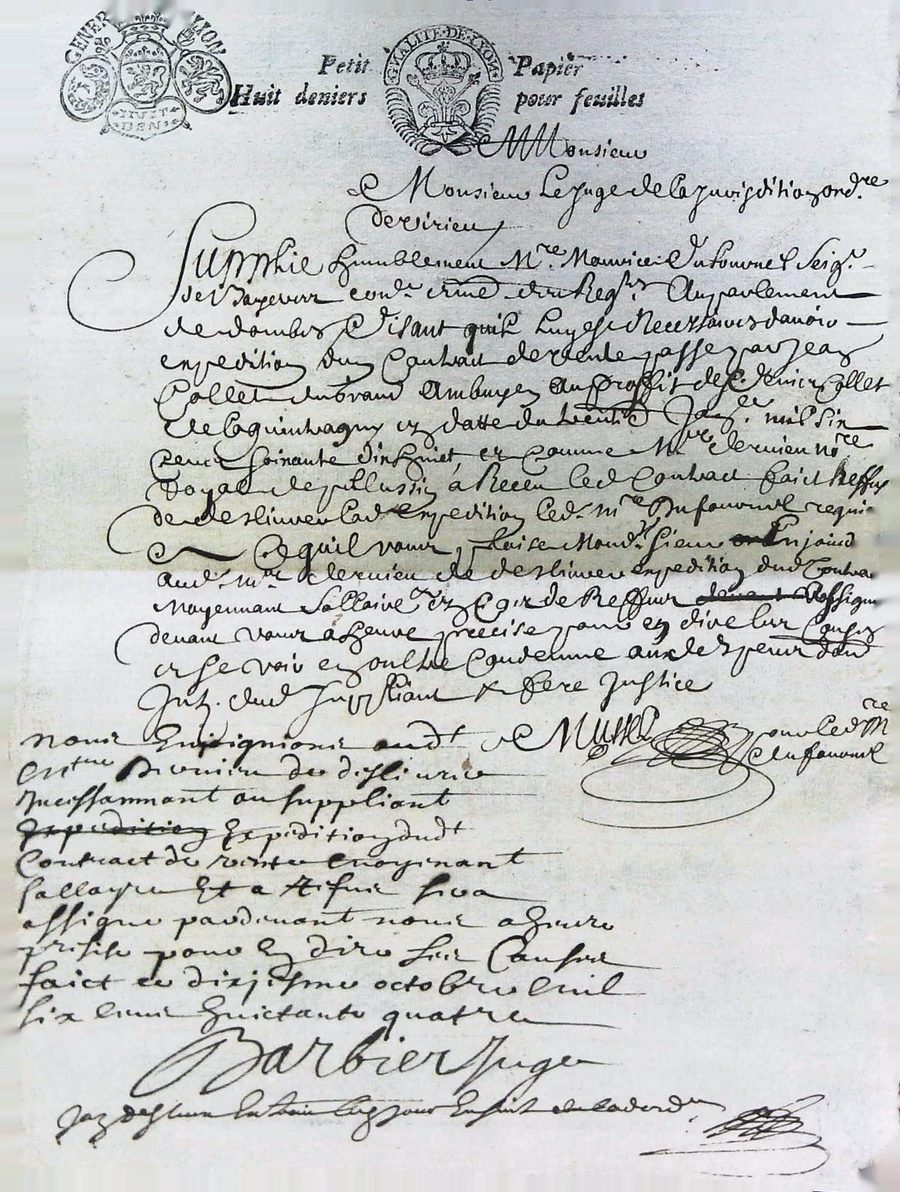 GENER LYON
HUIT DEN
GNALITE·DE·LYON
Petit Papier
Huit deniers pour feuilles
Monsieur
Monsieur Le juge de la jurisdition ordre
de virieu
Supplie humblement Mre Maurice Dufournel Seigr
du Regrs Au parlement
de dombes Disant quil luy est Necessaires davoir
expedition dun Contract de vente passe par Jean
Collet du grand Ambuyen Au proffit de Collet
de en datte du Janer mil six
cens soixante dix huict, et Comme Mre dervieu nore
Royal de pellussin a Receu led Contract faict Reffus
de deslivrer lad expedition led mre Dufournel requie
Ce quil vous plaise Mond Sieur Enjoind
aud mre dervieu de deslivrer expedition dud Contra
Moyennant Sallaire et En Cas de Reffus assigne
devant vous a heure precise pour en dire les Causes
et se voir en oultre Condemne aux despens dom
Intz dud Suppliant & fere Justice
Musset pour led Mre
dufournel
nous Enjoignions audt
Dervieu de deslivrer
Incessammant au suppliant
Expedition dudt
Contract de vente moyenant
sallayre Et a Refus sera
assigne pardevant nous a heure
presise pour En dire ses Causes
faict ce dixiesme octobre mil
six cens huictante quatre
Barbier Juge